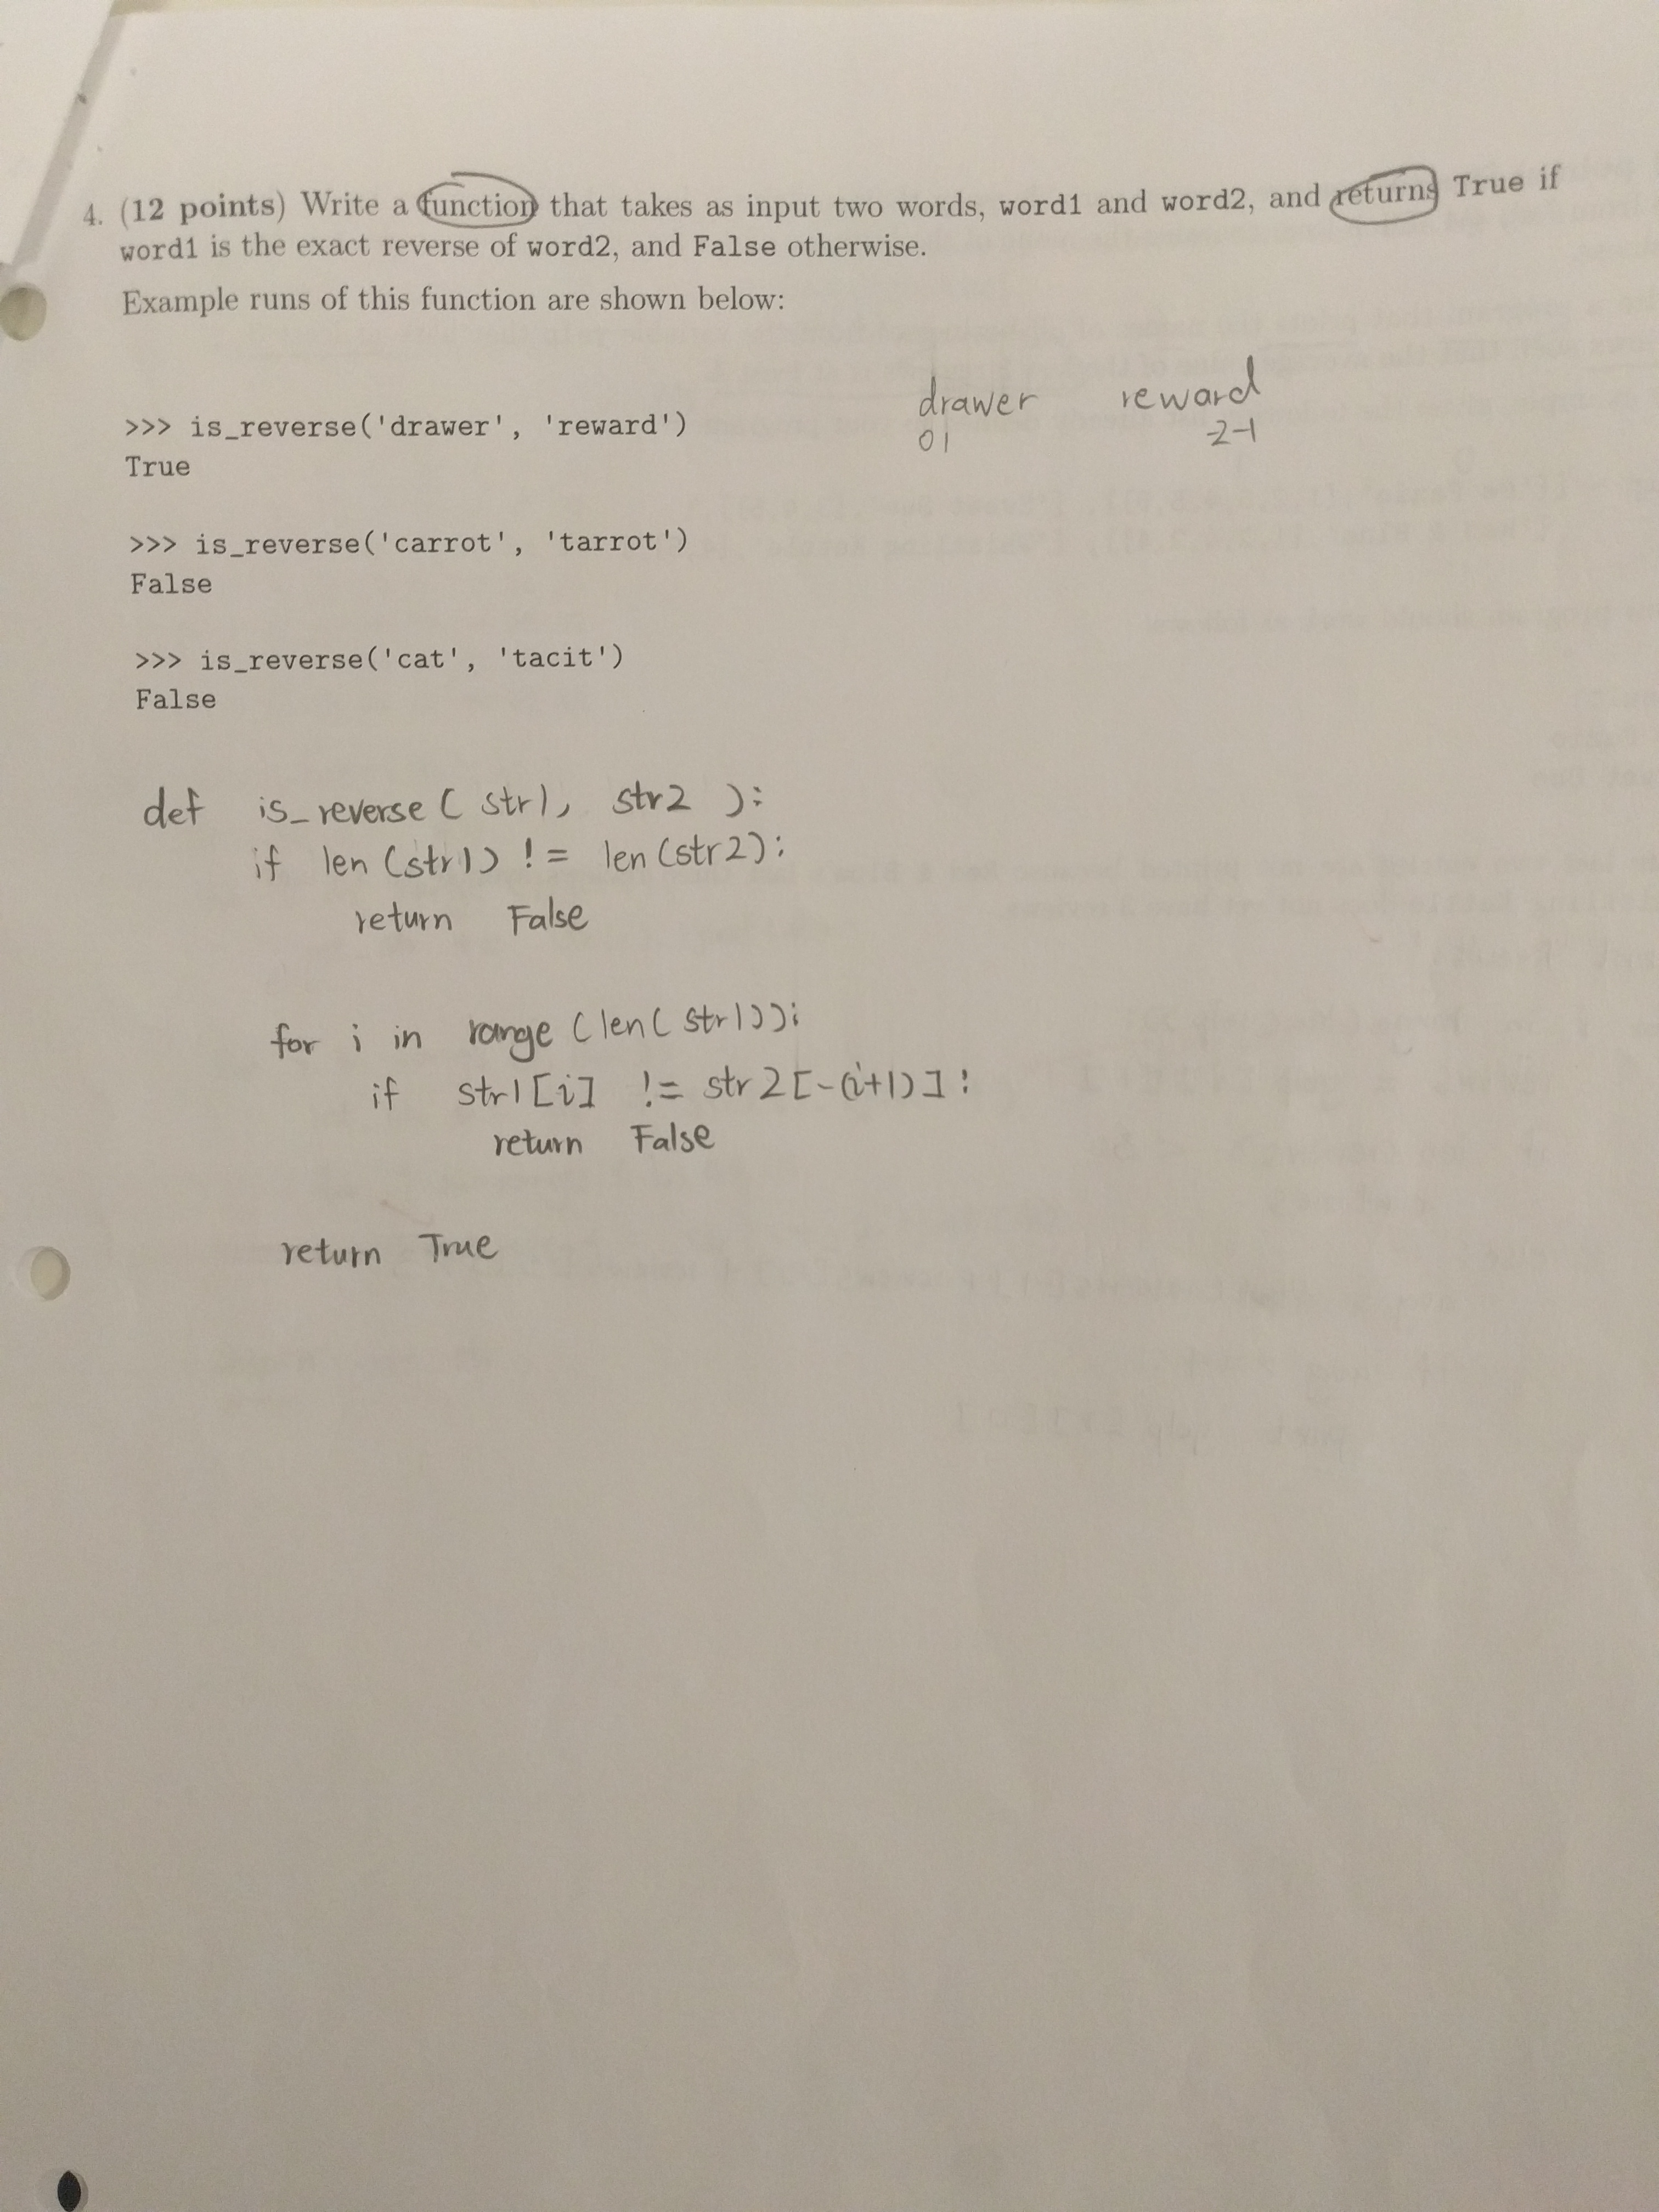 4. (12 points) Write a function that takes as input two words, word1 and word2, and returns True if
word1 is the exact reverse of word2, and False otherwise.
Example runs of this function are shown below:
drawer reward
>>> is_reverse('drawer', 'reward')
01 -2-1
True
>>> is_reverse('carrot', 'tarrot')
False
>>> is_reverse('cat', 'tacit')
False
def is_reverse( str1, str2 ):
if len(str1) != len(str2):
return False
for i in range (len( str1)):
if str1[i] != str2[-(i+1)]:
return False
return True